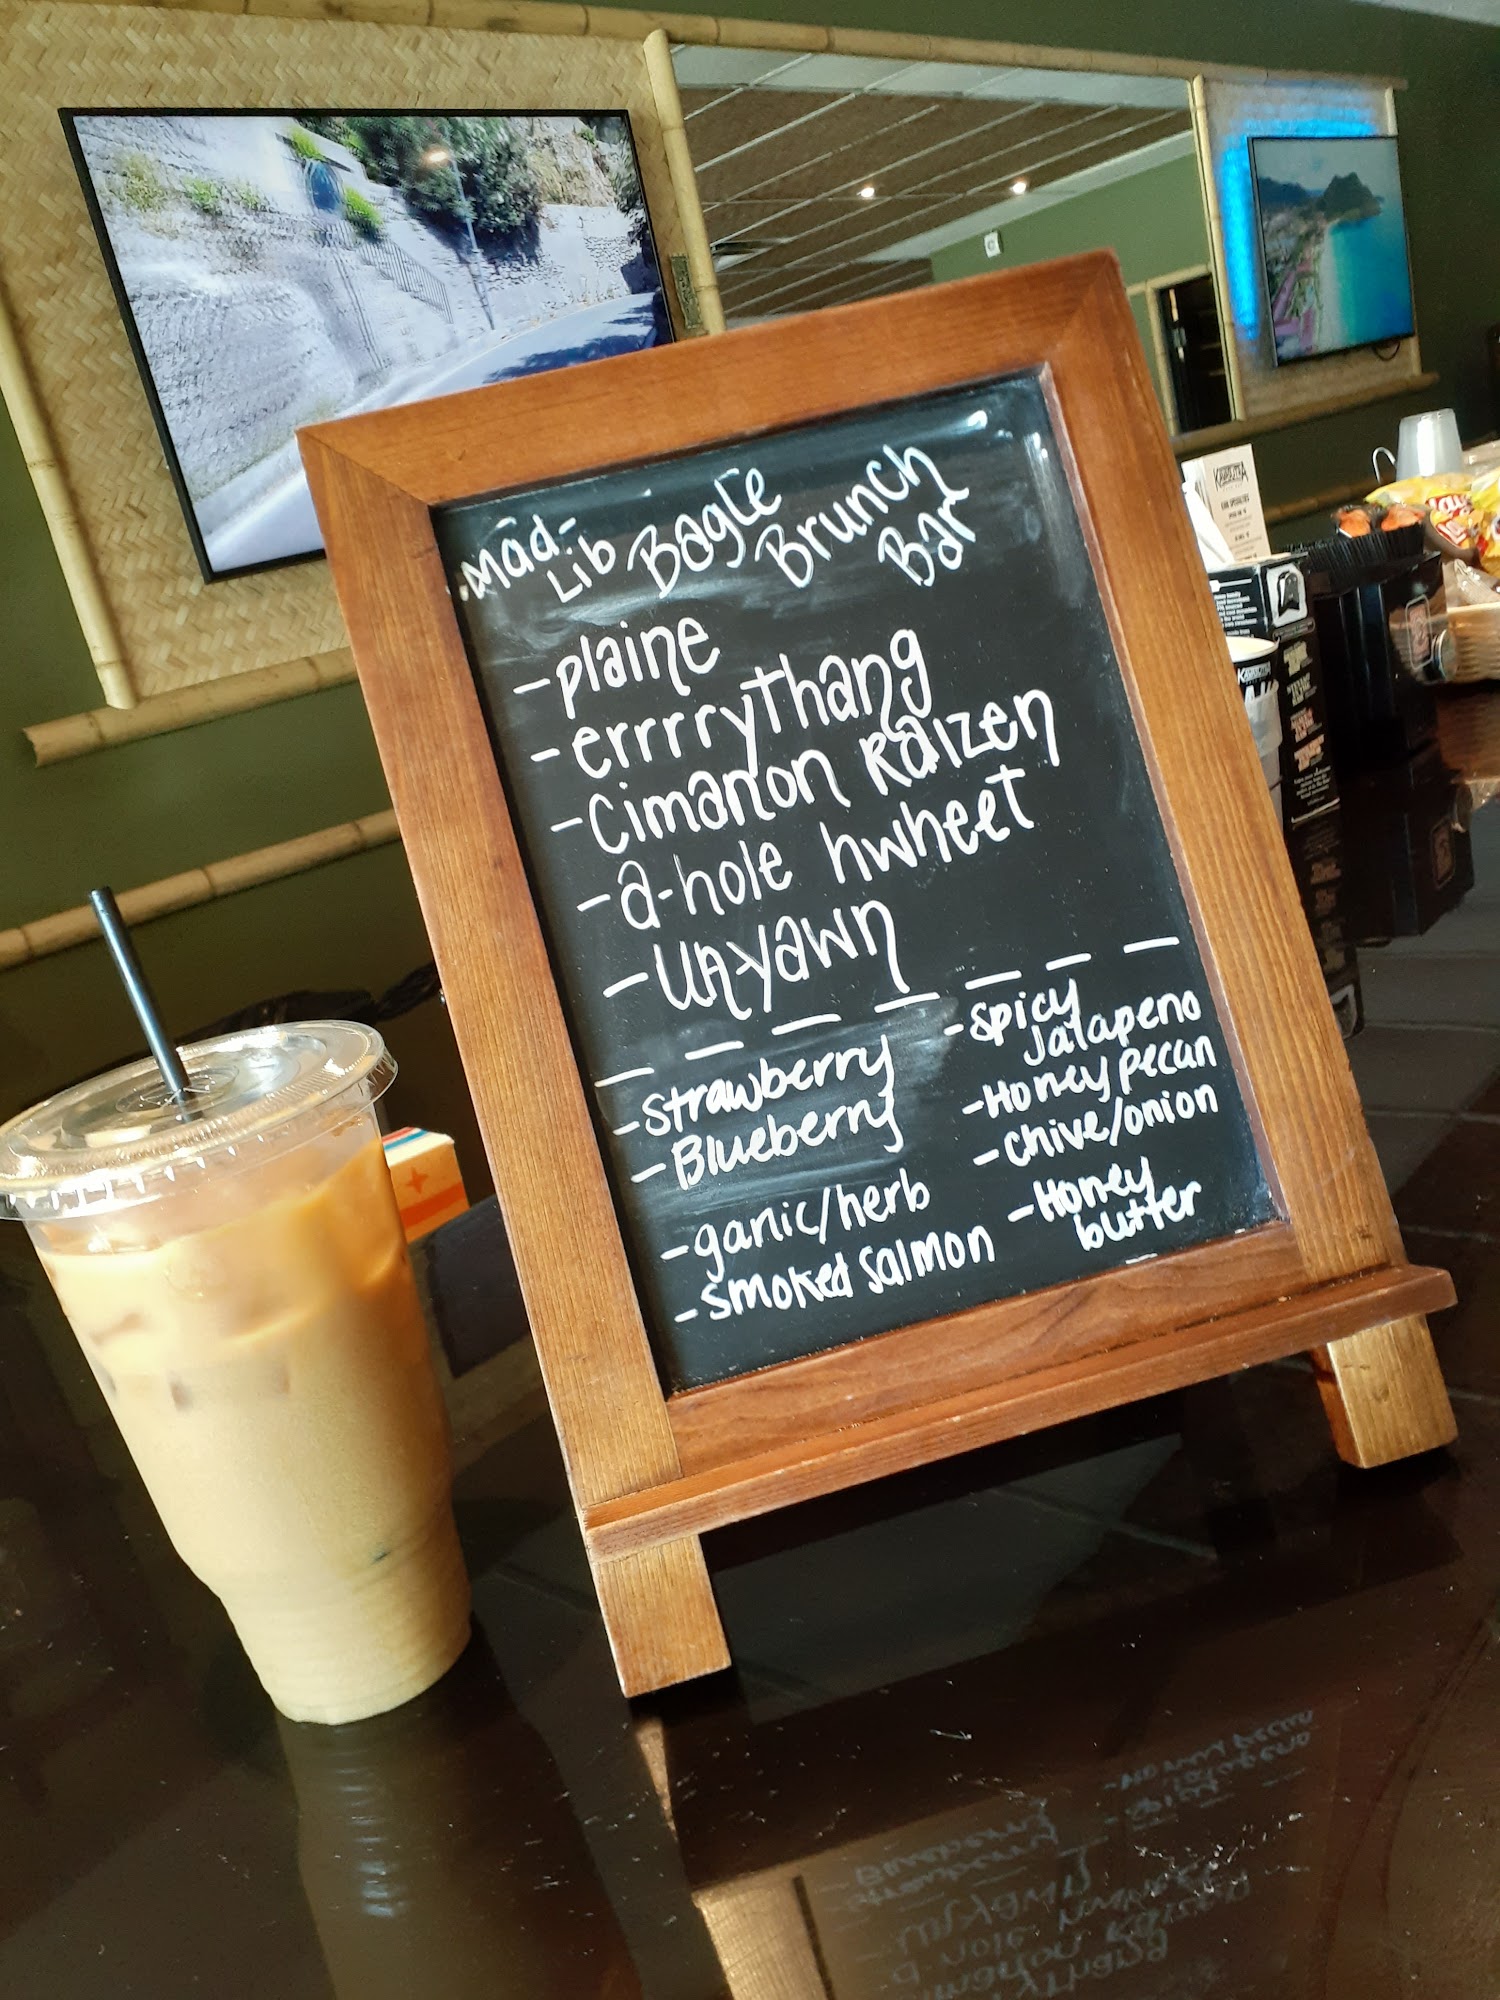 Mad-Lib Bagle Brunch Bar
- plaine
- errrrythang
- cimanon Raizen
- a-hole hwheet
- unyawn
- strawberry
- Blueberry
- garlic/herb
- smoked salmon
- spicy
jalapeno
- Honey pecan
- chive/onion
- Honey
butter
KAVASUTRA
Lay's